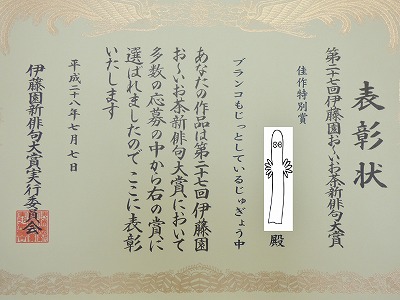 表彰状
第二十七回伊藤園お〜いお茶新俳句大賞
佳作特別賞
殿
ブランコもじっとしているじゅぎょう中
あなたの作品は第二十七回伊藤園
お〜いお茶新俳句大賞において
多数の応募の中から右の賞に
選ばれましたので ここに表彰
いたします
平成二十八年七月七日
伊藤園新俳句大賞実行委員会